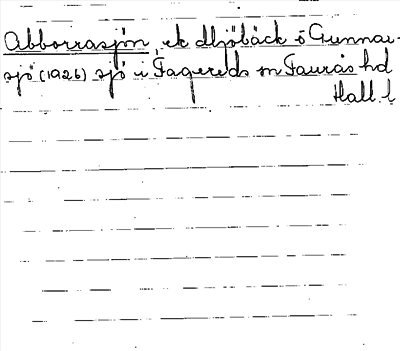 Abborrasjön, ek Ljöbäck o Gunnar-
sjö (1926) sjö i Fagereds sn Faurås hd
Hall. l